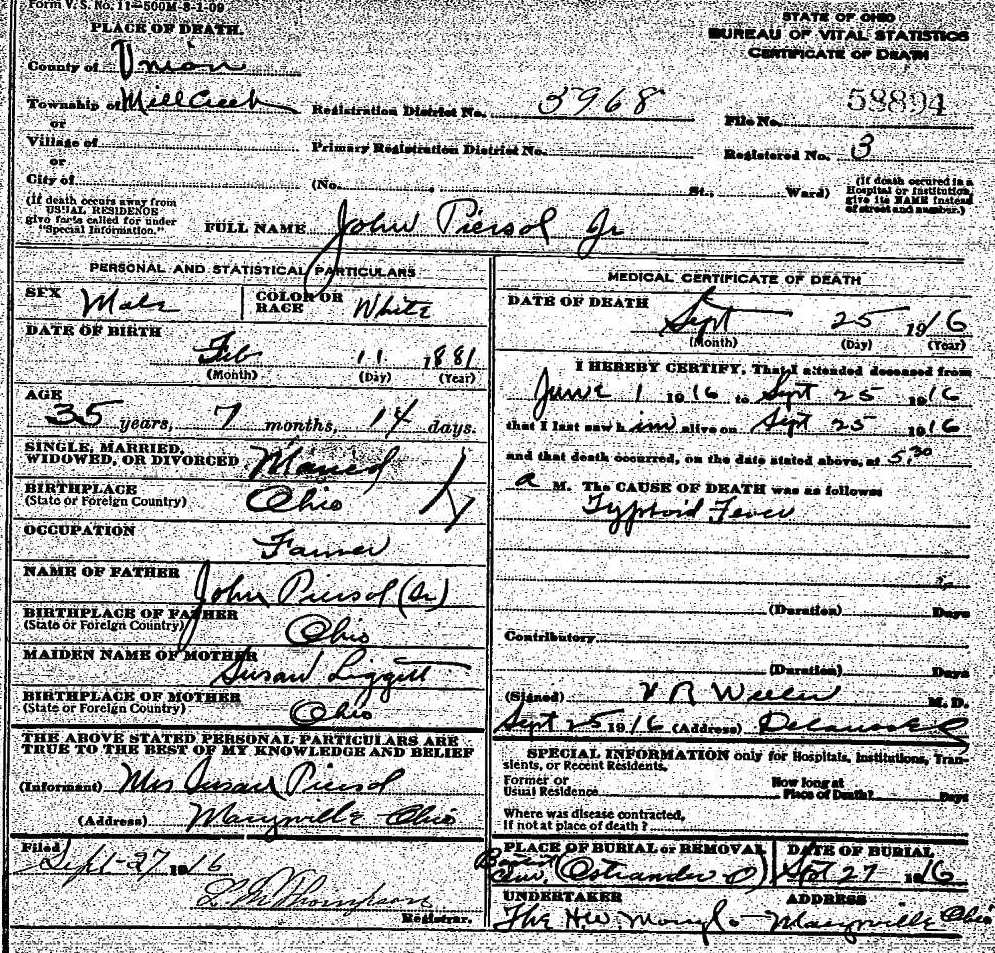 Form V. S. No. 11—500M-8-1-09
PLACE OF DEATH.
STATE OF OHIO
BUREAU OF VITAL STATISTICS
CERTIFICATE OF DEATH
County of Union
Township of Mill Creek Registration District No. 5968 File No. 58894
or
Village of Primary Registration District No. Registered No. 3
or
City of (No. , St., Ward) (If death occured in a Hospital or Institution, give its NAME instead of street and number.)
(If death occurs away from USUAL RESIDENCE give facts called for under "Special Information.")
FULL NAME John Piersol Jr
PERSONAL AND STATISTICAL PARTICULARS
SEX Male COLOR OR RACE White
DATE OF BIRTH
Feb 11 1881
(Month) (Day) (Year)
AGE
35 years, 7 months, 14 days.
SINGLE, MARRIED, WIDOWED, OR DIVORCED Maried
BIRTHPLACE
(State or Foreign Country) Ohio
OCCUPATION
Farmer
NAME OF FATHER John Piersol (Sr)
BIRTHPLACE OF FATHER
(State or Foreign Country) Ohio
MAIDEN NAME OF MOTHER Susan Liggett
BIRTHPLACE OF MOTHER
(State or Foreign Country) Ohio
THE ABOVE STATED PERSONAL PARTICULARS ARE
TRUE TO THE BEST OF MY KNOWLEDGE AND BELIEF
(Informant) Mrs Susan Piersol
(Address) Marysville Ohio
Filed
Sept-27 1916
L. M. Thompson
Registrar.
MEDICAL CERTIFICATE OF DEATH
DATE OF DEATH
Sept 25 1916
(Month) (Day) (Year)
I HEREBY CERTIFY, That I attended deceased from
June 1 1916 to Sept 25 1916
that I last saw h im alive on Sept 25 1916
and that death occurred, on the date stated above, at 5.30
a M. The CAUSE OF DEATH was as follows:
Typhoid Fever
(Duration) Days
Contributory
(Duration) Days
(Signed) M. D.
Sept 25 1916 (Address)
SPECIAL INFORMATION only for Hospitals, Institutions, Tran-
sients, or Recent Residents.
Former or Usual Residence How long at Place of Death? Days
Where was disease contracted,
If not at place of death?
PLACE OF BURIAL or REMOVAL DATE OF BURIAL
Ostrander O Sept 27 1916
UNDERTAKER ADDRESS
The H.W. Marysville Ohio